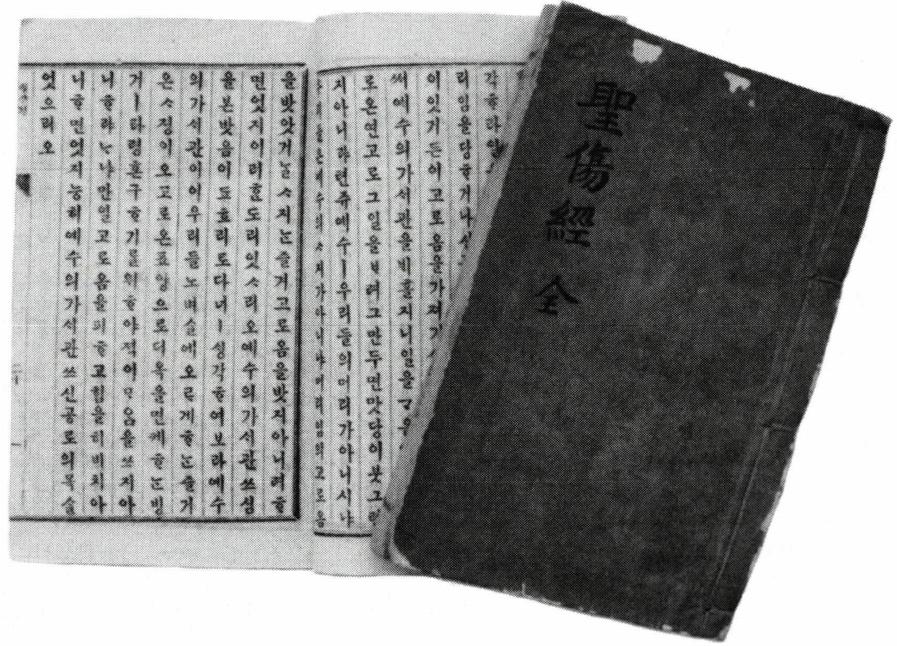 聖傷經 全
각ᄒᆞ라
리임을당ᄒᆞ거나
이잇기든이고로옴을가져
써예수의가싀관을비흘지니일을
로온연고로그일을ᄇᆞ려그만두면맛당이붓그
지아니ᄒᆞ랴련즉예수ㅣ우리들의머리가아니시냐
을밧앗거ᄂᆞᆯᄉᆞ지ᄂᆞᆫ즐겨고로옴을밧지아니려ᄒᆞ
면엇지이러ᄒᆞᆫ도리잇ᄉᆞ리오예수의가싀관쓰심
을본밧음이됴흐리로다너ㅣ싱각ᄒᆞ여보라예수
의가싀관이이우리들노며슬에오ᄅᆞ게ᄒᆞᄂᆞᆫ즐기
온ᄉᆞ졍이오고로온표양으로더옥올면케ᄒᆞᄂᆞᆫ빙
거ㅣ타령혼구ᄒᆞ기를위ᄒᆞ야적어ᄆᆞ음을쓰지아
니ᄒᆞ랴ᄂᆞ냐만일고로옴을피ᄒᆞ고힘을허비치아
니ᄒᆞ면엇지능히예수의가싀관쓰신공로의목슬
엇으리오